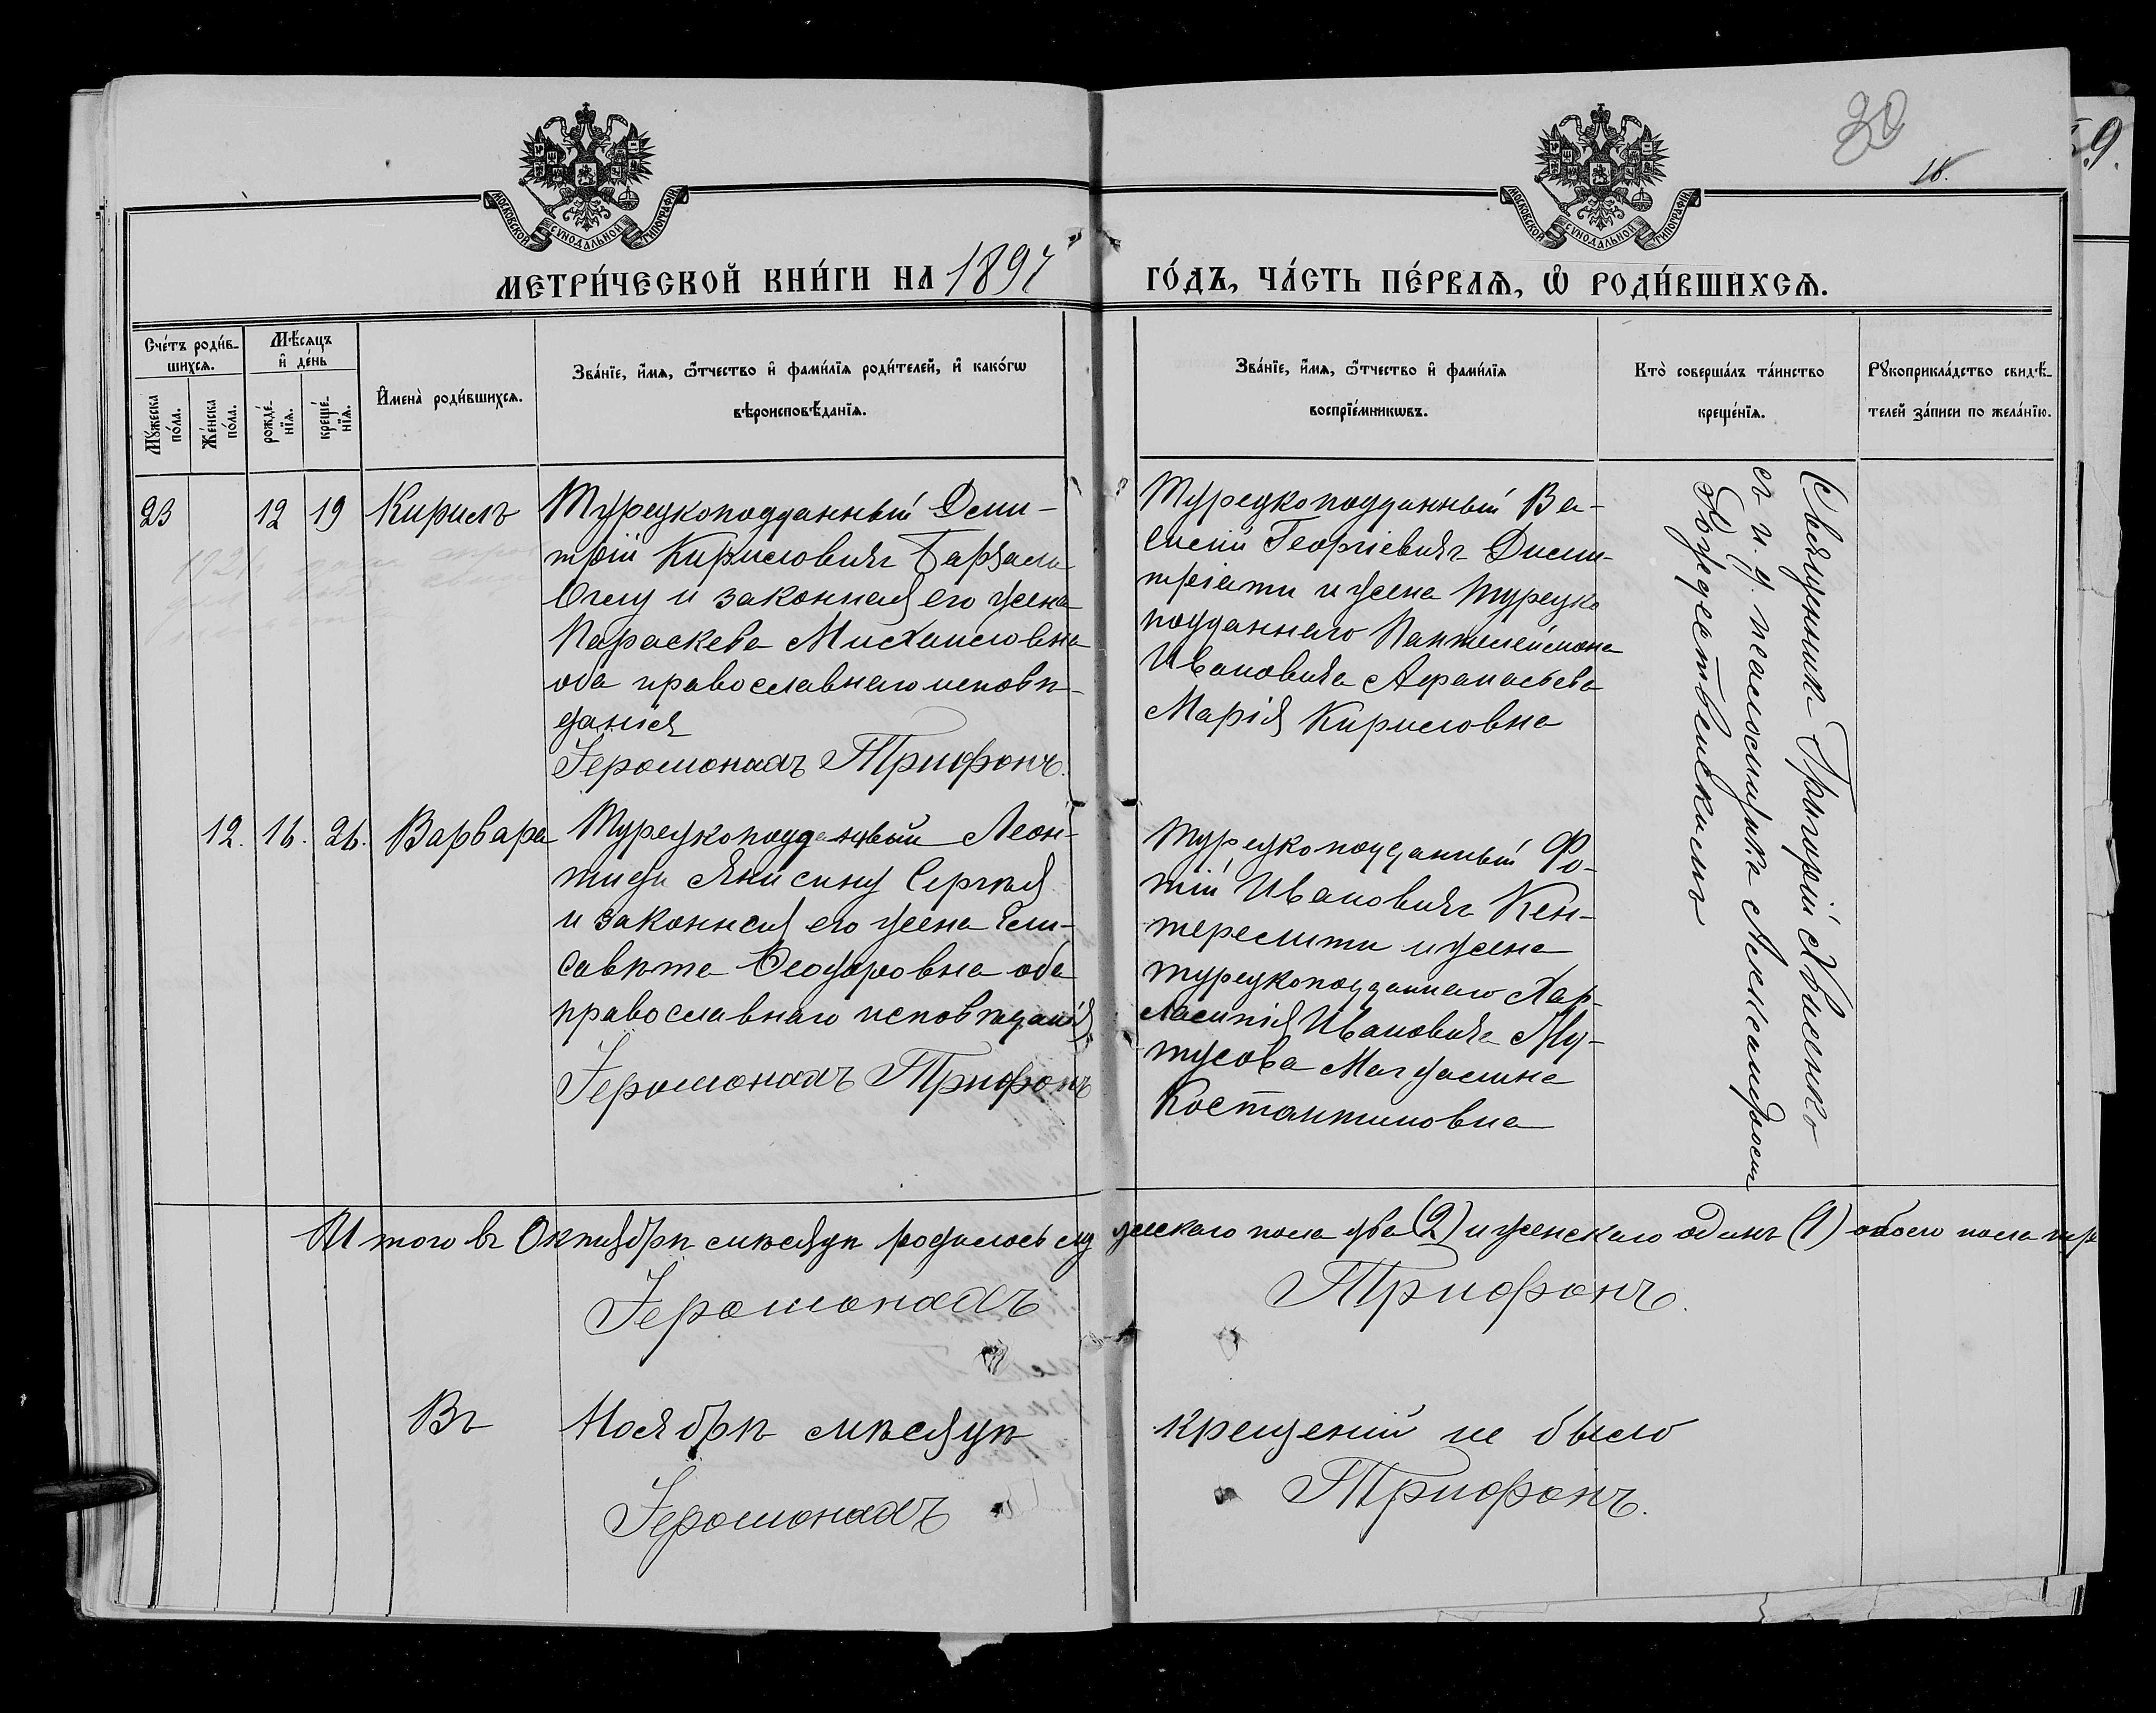 30
18.
59.
МОСКОВСКОЙ СУНОДАЛЬНОЙ ТИПОГРАФІИ
МОСКОВСКОЙ СУНОДАЛЬНОЙ ТИПОГРАФІИ
МЕТРИ́ЧЕСКОЙ КНИ́ГИ НА 1897 ГО́ДЪ, ЧА́СТЬ ПЕ́РВАѦ, Ѽ РОДИ́ВШИХСѦ.
Сче́тъ роди́в-
шихсѧ.
Мꙋ́жеска
по́ла.
Же́нска
по́ла.
Мѣ́сѧцъ
и҆ де́нь
рожде́-
нїѧ.
креще́-
нїѧ.
И҆мена̀ роди́вшихсѧ.
Зва́нїе, и҆́мѧ, ѻ҆́тчество и҆ фами́лїѧ роди́телей, и҆ како́гѡ
вѣроисповѣ́данїѧ.
Зва́нїе, и҆́мѧ, ѻ҆́тчество и҆ фами́лїѧ
воспрїе́мникѡвъ.
Кто̀ соверша́лъ та́инство
креще́нїѧ.
Рꙋкоприкла́дство свидѣ́-
телей за́писи по жела́нїю.
23 12 19 Кирилъ
Турецкоподданный Дми-
трій Кирилловичъ
Оглу и законная его жена
Параскева Михаиловна
оба православнаго исповѣ-
данія
Іеромонахъ Трифонъ.
Турецкоподданный Ва-
силій Георгіевичъ Дими-
тріати и жена турецко
подданнаго Пантелеймона
Ивановича Афанасьева
Марія Кирилловна
12. 16. 26. Варвара
Турецкоподданный Леон-
Сергѣя
и законная его жена Ели-
савѣта Ѳеодоровна оба
православнаго исповѣданія
Іеромонахъ Трифонъ
Турецкоподданный Фо-
тій Ивановичъ Кен-
терелити и жена
турецкоподданнаго Хар-
лампія Ивановича Му-
тусова Магдалина
Костантиновна
Священникъ Григорій
съ и. д. псаломщика Александромъ
Рождественскимъ
Итого въ Октябрѣ мѣсяцѣ родилось мужескаго пола два (2) и женскаго одинъ (1) обоего пола три
Іеромонахъ Трифонъ.
Въ Ноябрѣ мѣсяцѣ крещеній не было
Іеромонахъ Трифонъ.